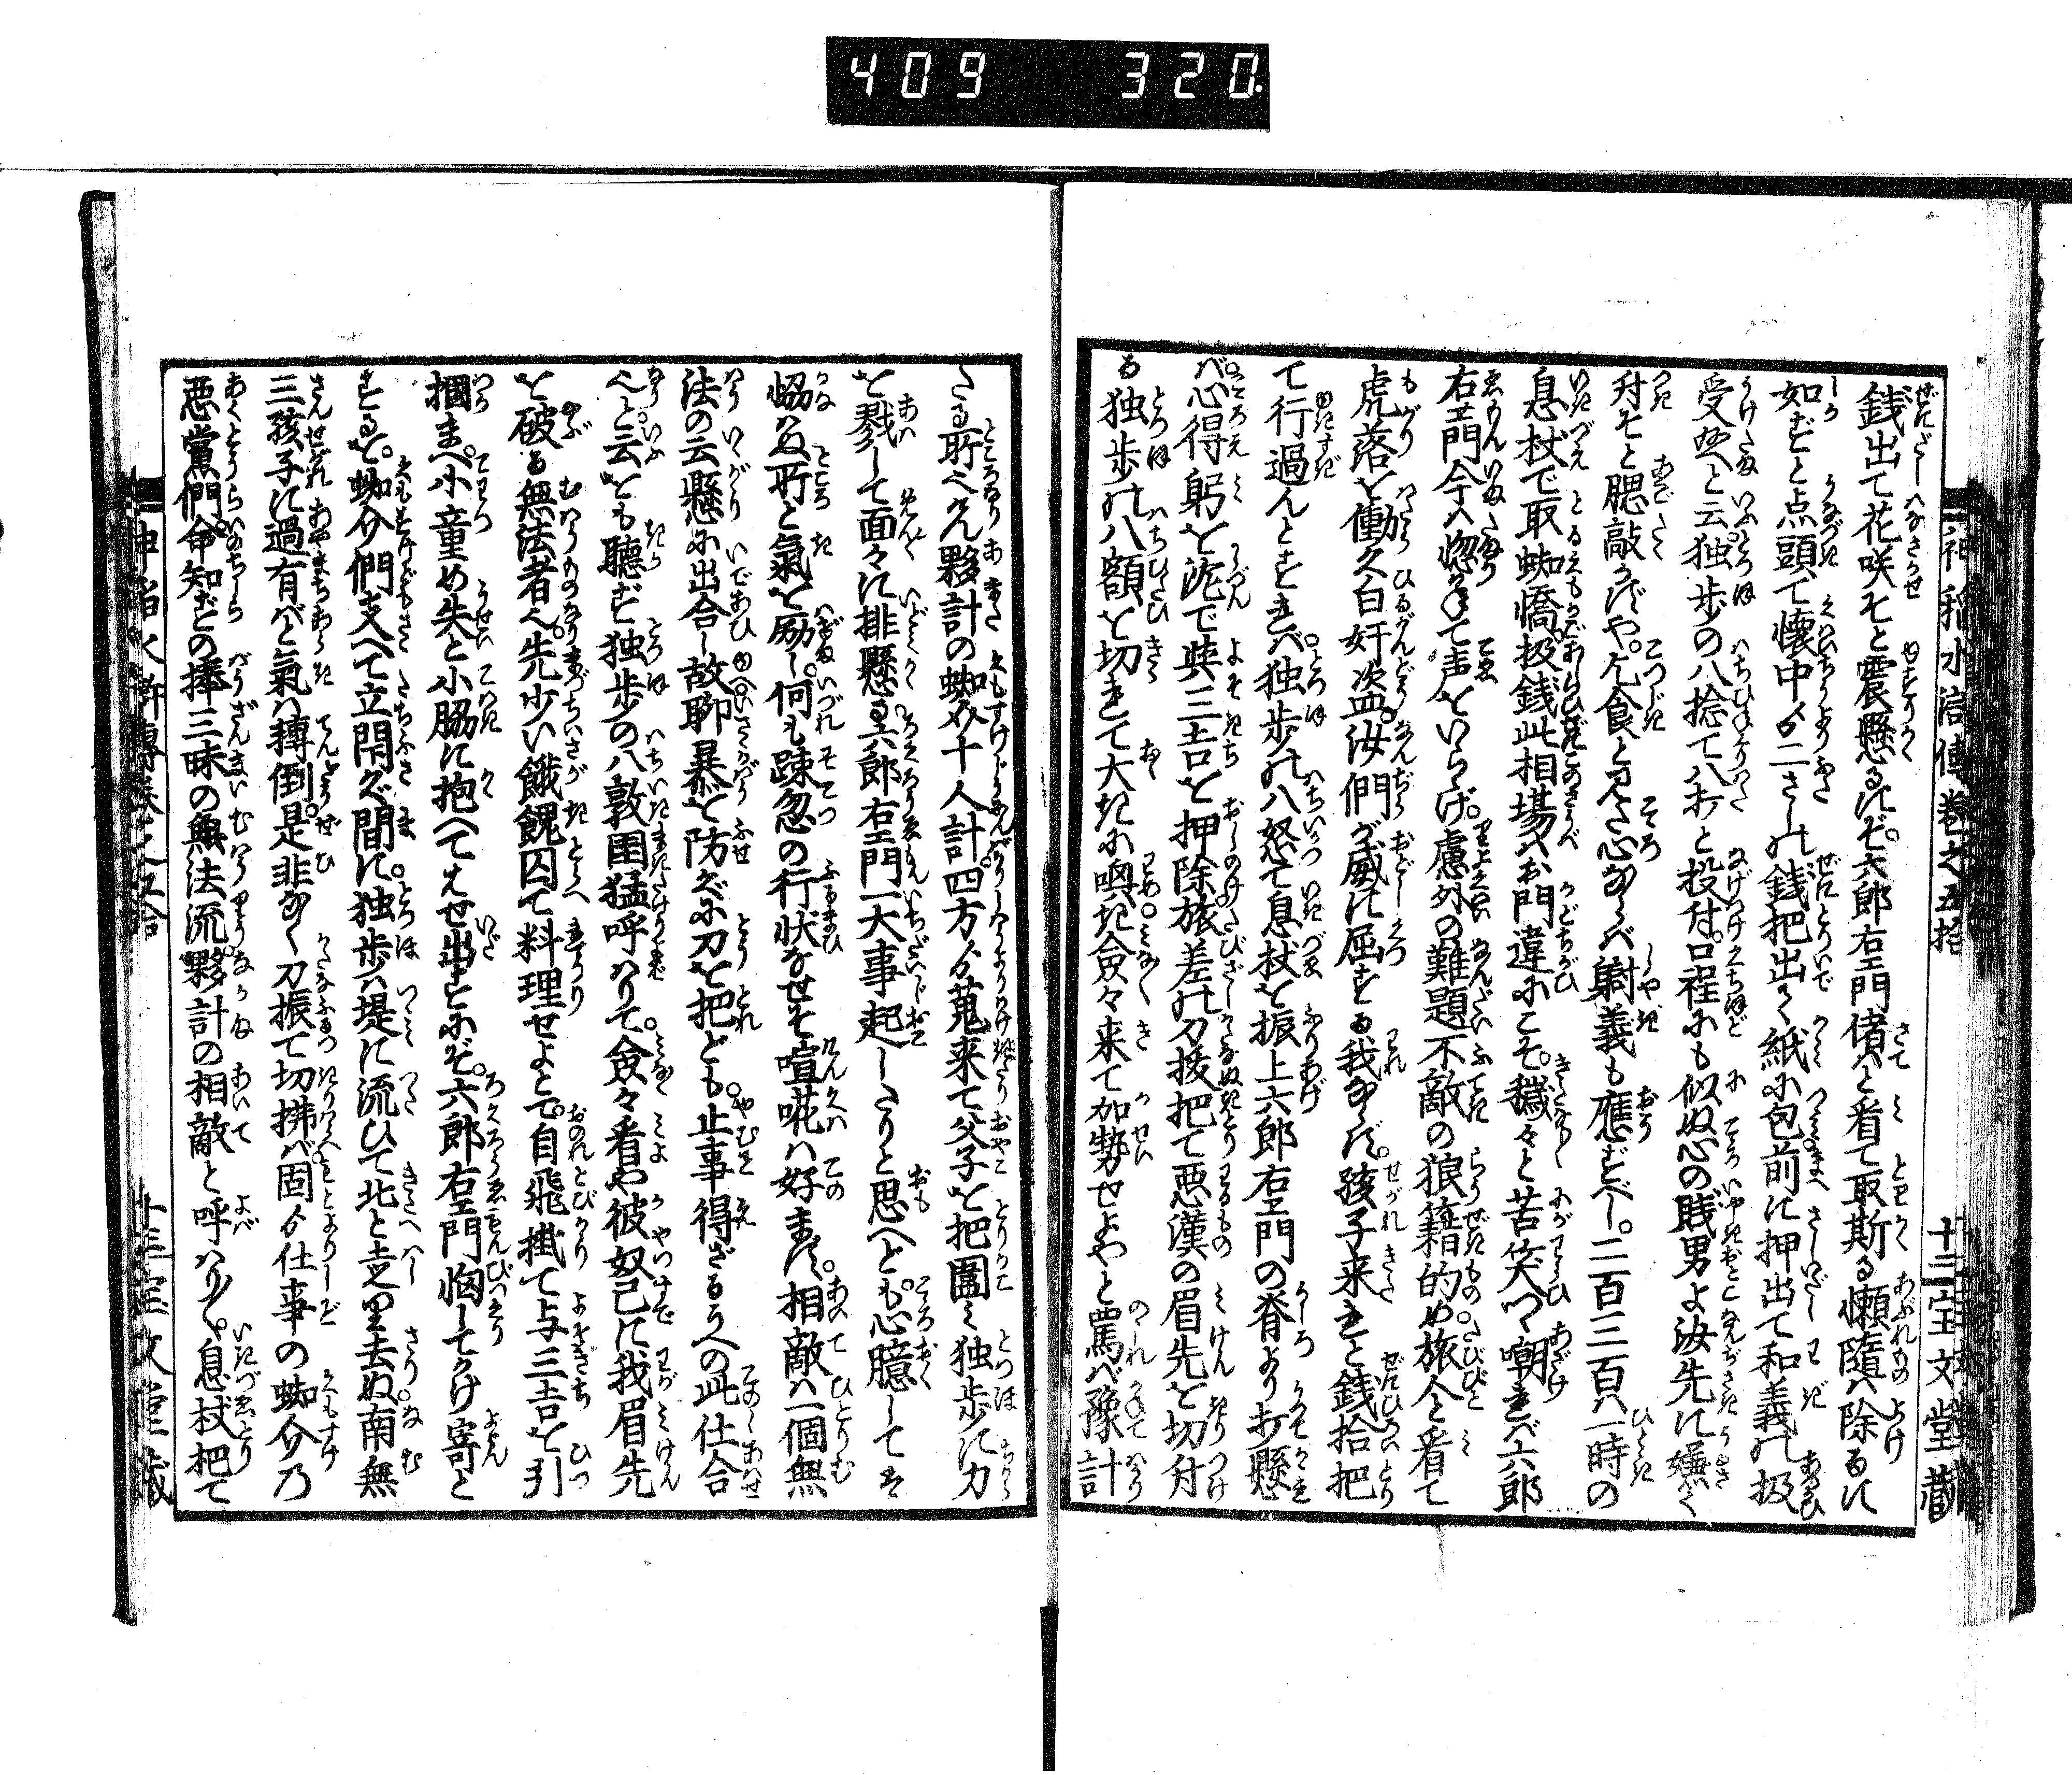 409 320.
神稲水滸傳巻之五拾 十三 宝文堂蔵
銭出て花咲せと震懸るにぞ。六郎右エ門偖はと看て取斯る懶隨は除るに
如ずと点頭て懐中より二さしの銭把出して紙に包前に押出て和義の扱
受給へと云。独歩の八捻て八打と投付。口程にも似ぬ心の賎男よ汝先に嬾く
対せと腮敲かずや。乞食と見さ心ならバ射義も應ずべし。二百三百ハ一時の
息杖で取蜘蛛扱銭此相場ハお門違にこそ。穢々と苦笑つゝ嘲れバ六郎
右エ門今ハ惚かねて声をいらゝげ。慮外の難題不敵の狼籍的め旅人と看て
虎落を働く白奸盗。汝們が威に屈する我ならず。孩子来れと銭拾把
て行過んとすれバ。独歩の八怒て息杖を振上六郎右エ門の脊より打懸れ
バ。心得躬を沈で与三吉を押除旅差の刀援把て悪漢の眉先を切付
る独歩の八額を切れて大きに噢き。僉々来て加勢せよやと罵バ豫計
たる所なり。夥計の蜘助十人計。四方より蒐来て父子を把圍み独歩に力
を戮して面々に排懸る。六郎右エ門一大事起したりと思へども。心臆してハ
恊ハぬ所と氣を励し。何も踈忽の行状なせそ喧嘩ハ好ます。相敵ハ一個無
法の云懸に出合し故聊暴を防ぐに刀を把ども。止事得ざるうへの此仕合
なりと。云ども聴ず独歩の八敦圉猛呼ハりて。僉々看や彼奴己に我眉先
を破る無法者なり。先少い餓鬼囚て料理せよとて。自飛掛て与三吉を引
掴まへ。小童め失と小脇に抱へてはせ出すにぞ。六郎右エ門惱してかけ寄と
するを。蜘助們支へて立閉ぐ間に。独歩ハ堤に流ひて北と走り去ぬ。南無
三孩子に過有バと氣ハ轉倒。是非なく刀振て切拂バ。固より仕事の蜘助乃
悪黨們。命知ずの捧三昧の無法流。夥計の相敵と呼ハり〱。息杖把て